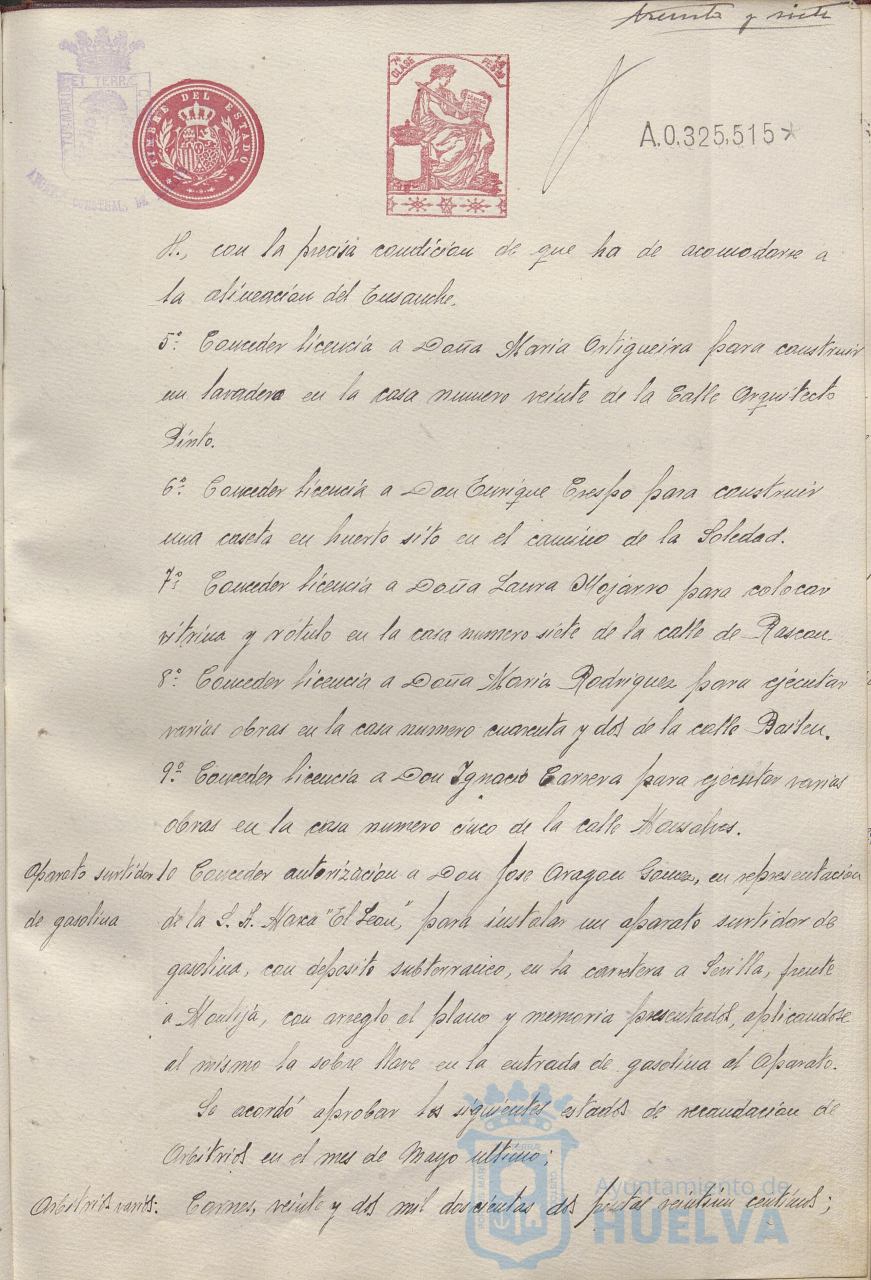 treinta y siete
ET TERRÆ
TIMBRE DEL ESTADO
7ª CLASE
A.0.325,515*
H., con la precisa condicion de que ha de acomodarse a
la alineacion del Ensanche.
5º Conceder licencia a Doña Maria Ortigueira para construir
un lavadero en la casa numero veinte de la Calle Arquitecto
Pinto.
6º Conceder licencia a Don Enrique Crespo para construir
una caseta en huerto sito en el camino de la Soledad.
7º Conceder licencia a Doña Laura Mojarro para colocar
vitrina y rótulo en la casa numero siete de la calle de Rascon.
8º Conceder licencia a Doña Maria Rodriguez para ejecutar
varias obras en la casa numero cuarenta y dos de la calle Bailen.
9º Conceder licencia a Don Ignacio Carrera para ejecutar varias
obras en la casa numero cinco de la calle Monsalves.
Aparato surtidor 10 Conceder autorizacion a Don Jose Aragon Gómez, en representación
de gasolina de la S. A. "El Leon", para instalar un aparato surtidor de
gasolina, con deposito subterraneo, en la carretera a Sevilla, frente
a Montija, con arreglo al plano y memoria presentados, aplicandose
al mismo la sobre llave en la entrada de gasolina al Aparato.
Se acordó aprobar los siguientes estados de recaudacion de
Arbitrios en el mes de Mayo ultimo;
Arbitrios varios: Carnes, veinte y dos mil doscientas dos pesetas veintiun centimos;
Ayuntamiento de
HUELVA